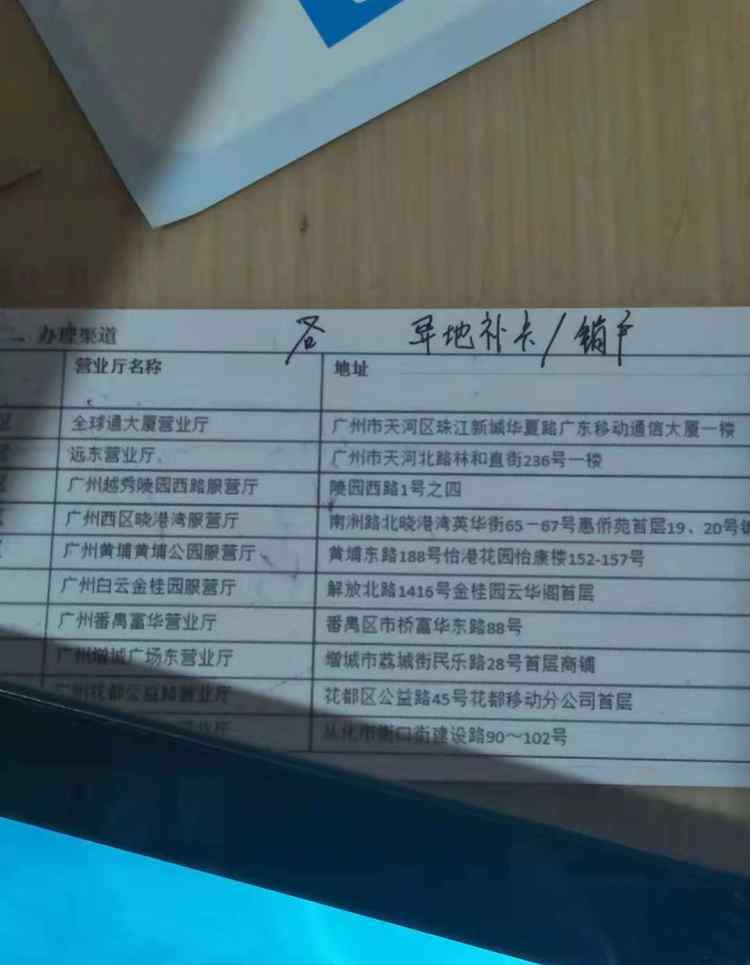 办理渠道 异地补卡/销户
营业厅名称 地址
全球通大厦营业厅 广州市天河区珠江新城华夏路广东移动通信大厦一楼
远东营业厅 广州市天河北路林和直街236号一楼
广州越秀陵园西路服营厅 陵园西路1号之四
广州西区晓港湾服营厅 南洲路北晓港湾英华街65－67号惠侨苑首层19、20号
广州黄埔黄埔公园服营厅 黄埔东路188号怡港花园怡康楼152-157号
广州白云金桂园服营厅 解放北路1416号金桂园云华阁首层
广州番禺富华营业厅 番禺区市桥富华东路88号
广州增城广场东营业厅 增城市荔城街民乐路28号首层商铺
广州花都公益路营业厅 花都区公益路45号花都移动分公司首层
从化市街口街建设路90～102号